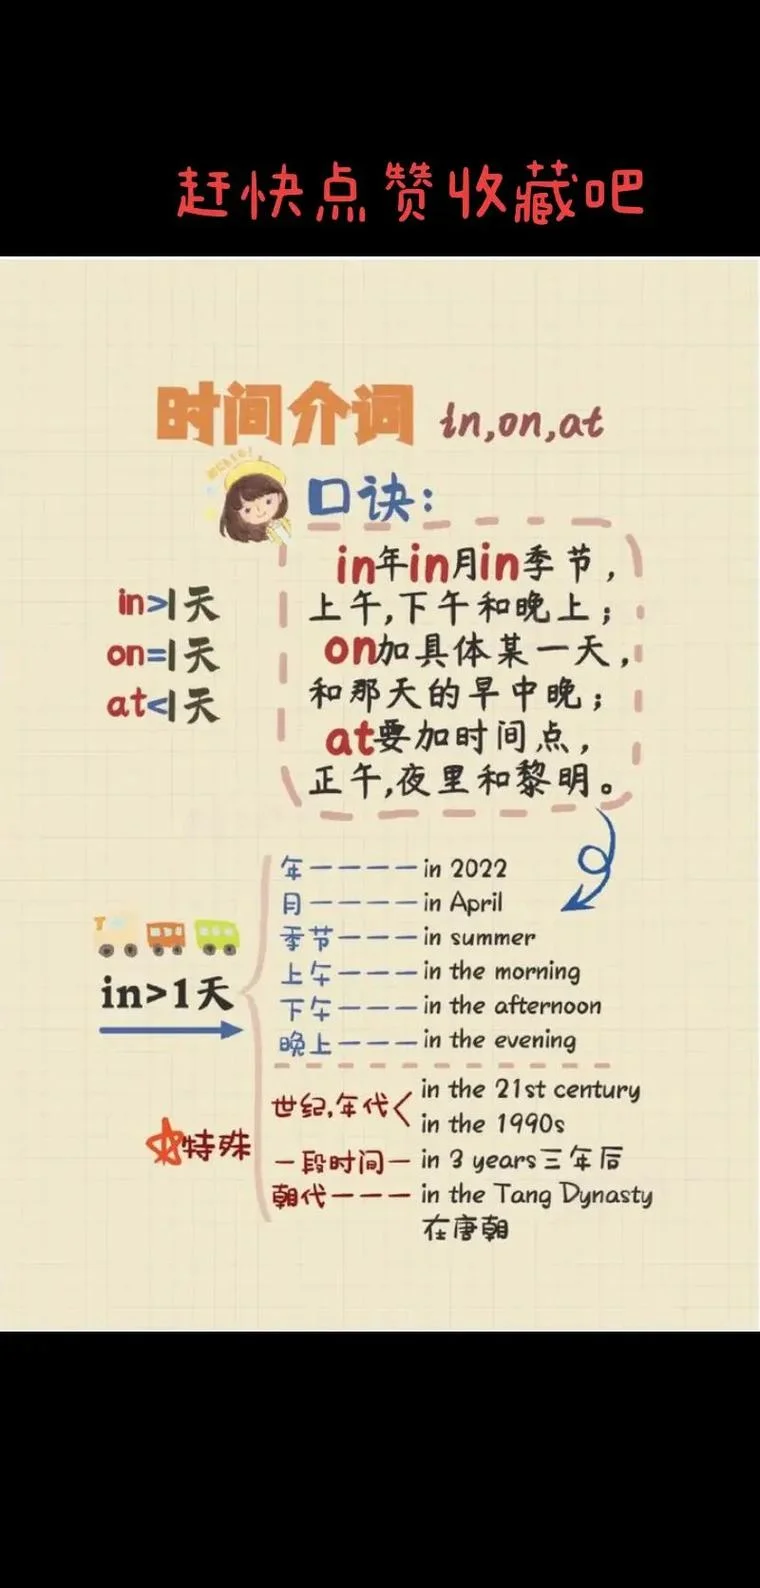 赶快点赞收藏吧
时间介词 in,on,at
口诀:
in年in月in季节,
上午,下午和晚上;
on加具体某一天,
和那天的早中晚;
at要加时间点,
正午,夜里和黎明。
in>1天
on=1天
at<1天
年----in 2022
月----in April
季节---in summer
上午---in the morning
下午---in the afternoon
晚上---in the evening
in>1天
特殊
世纪,年代<in the 21st century
in the 1990s
一段时间-in 3 years三年后
朝代---in the Tang Dynasty
在唐朝